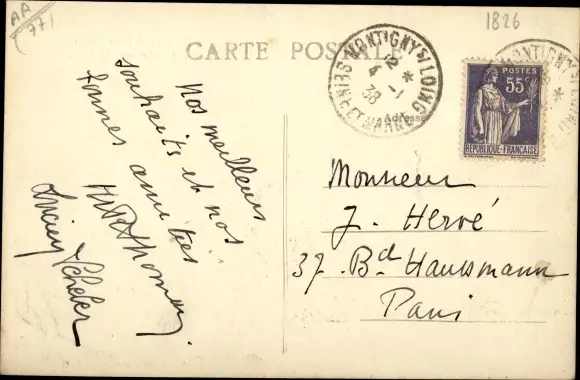 AA
771
1826
CARTE POSTALE
MONTIGNY S/ LOING
SEINE ET MARNE
12 *
4 -1
38
POSTES
55c
RÉPUBLIQUE-FRANÇAISE
Adresse
Nos meilleurs
souhaits et nos
bonnes amitiés
Lucien Scheler
Monsieur
J. Hervé
37. Bd Haussmann
Paris